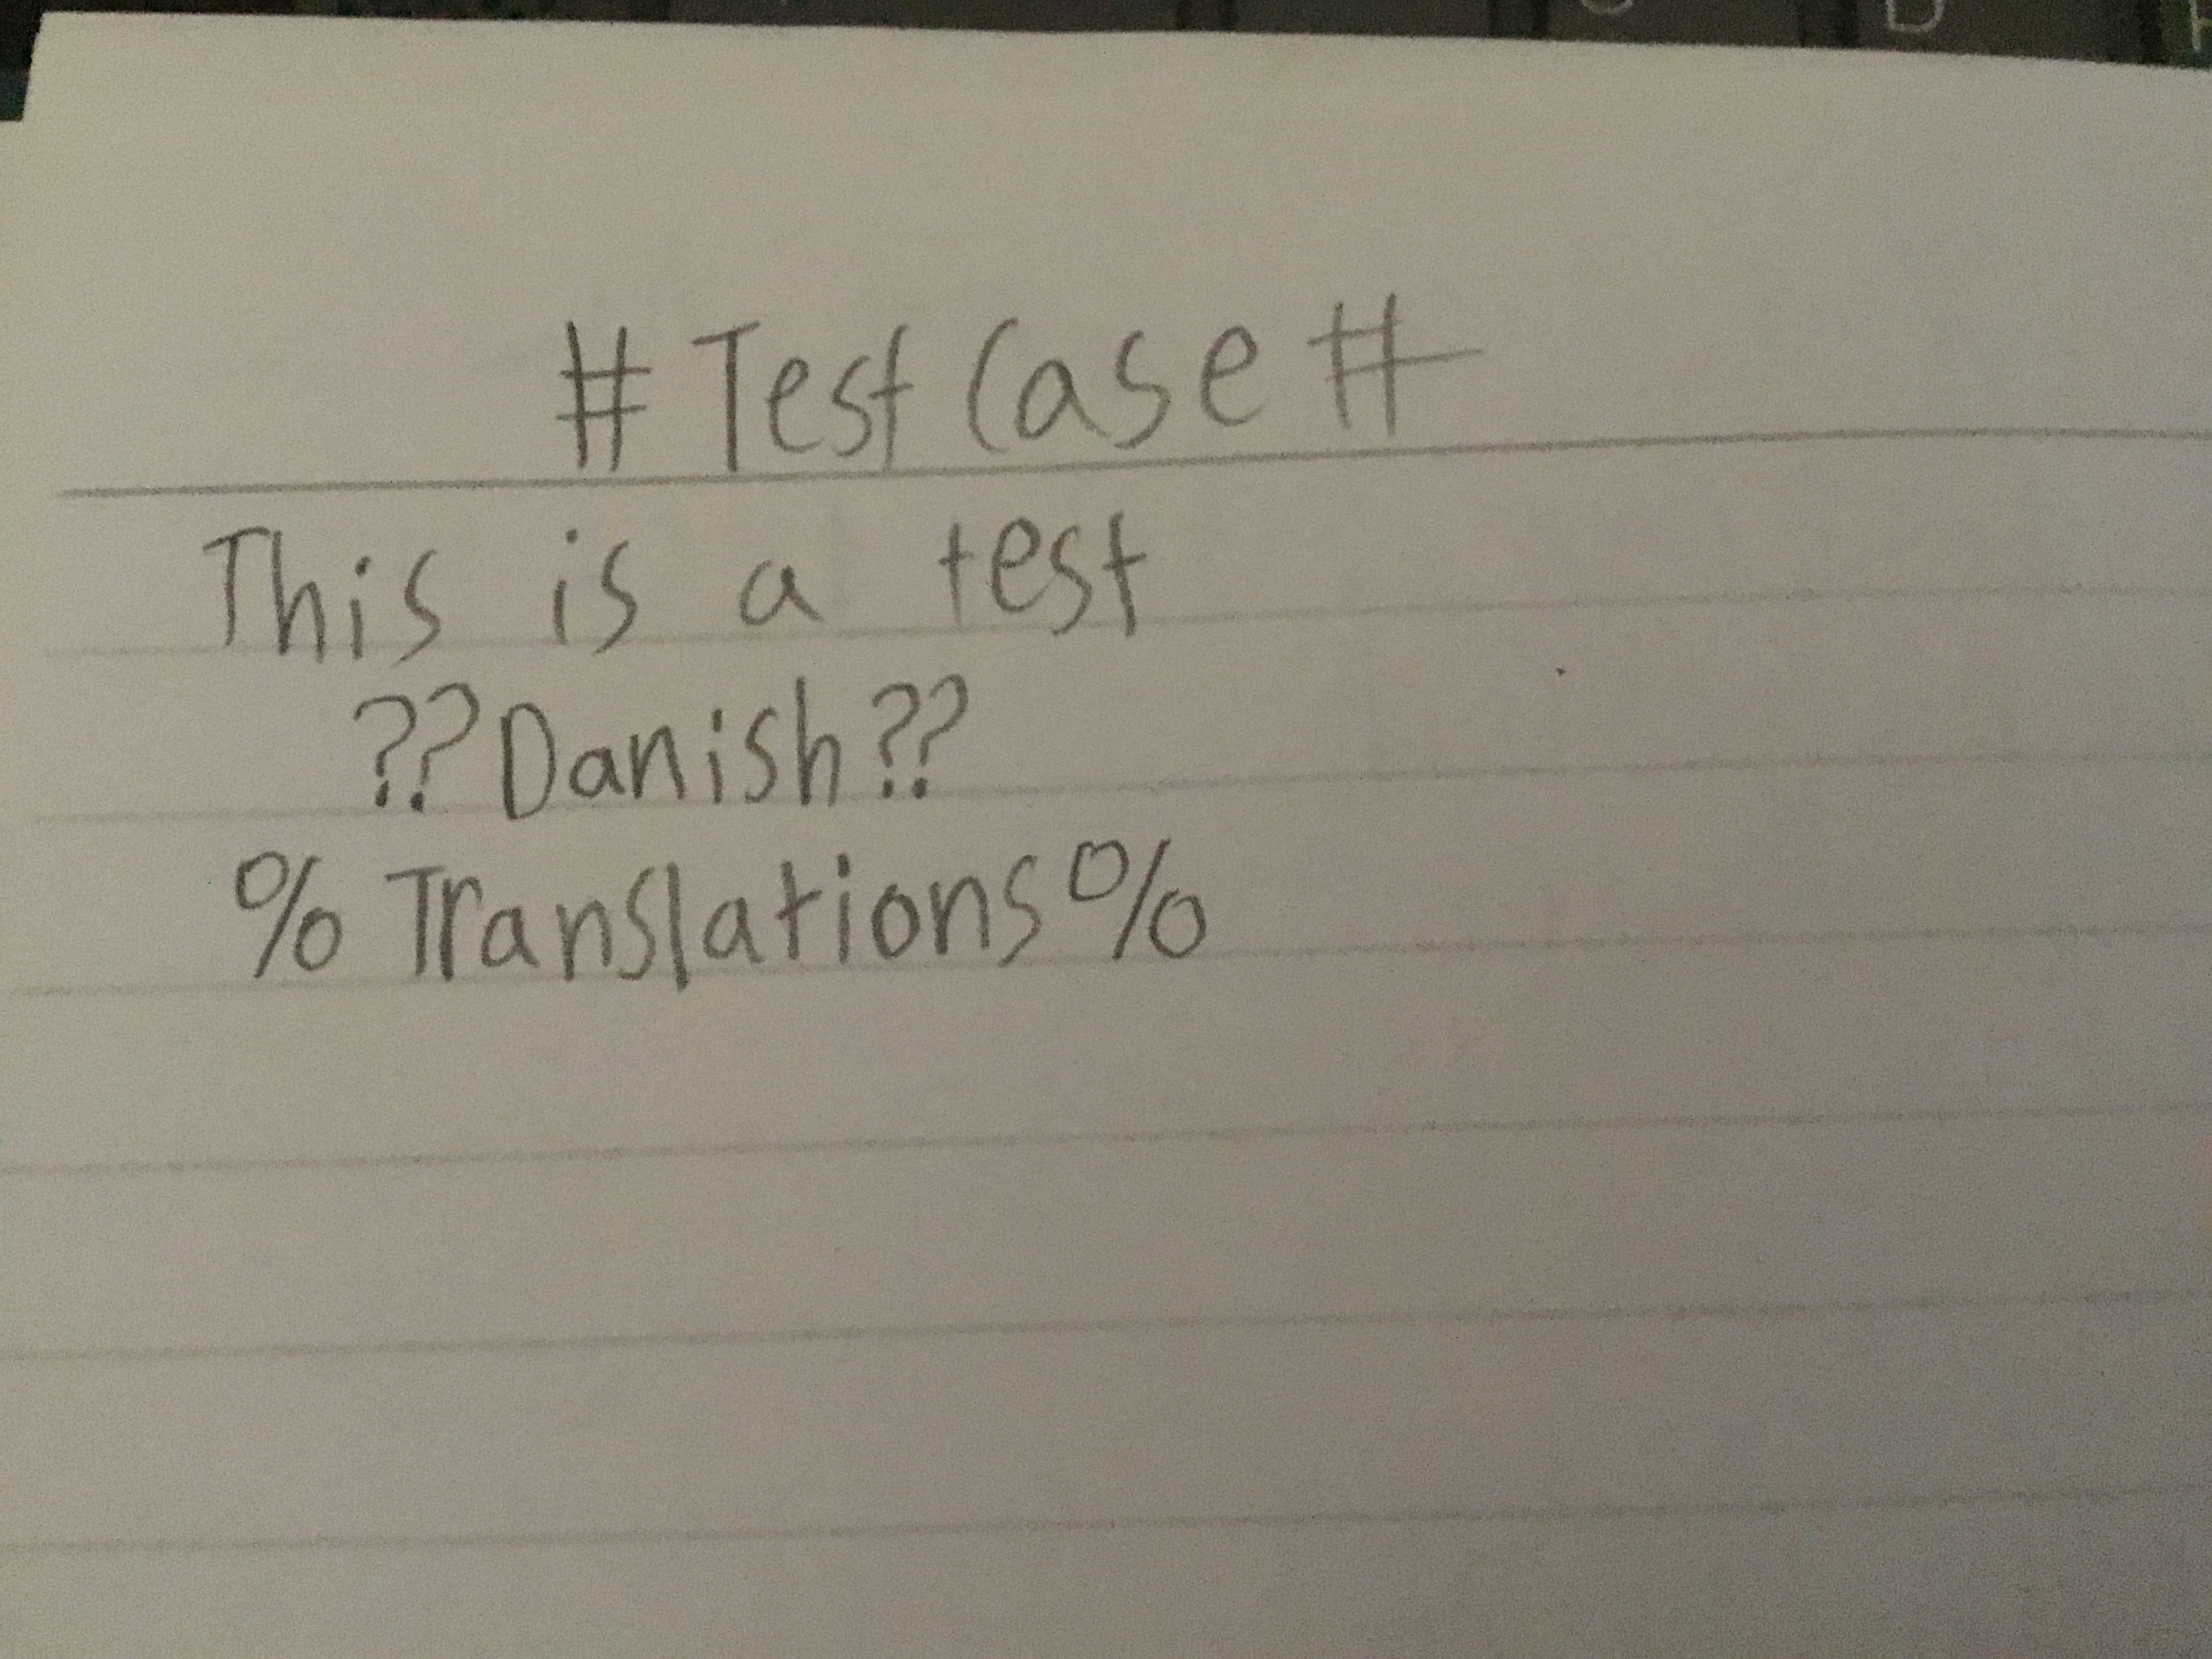 # Test Case #
This is a test
??Danish??
% Translations %